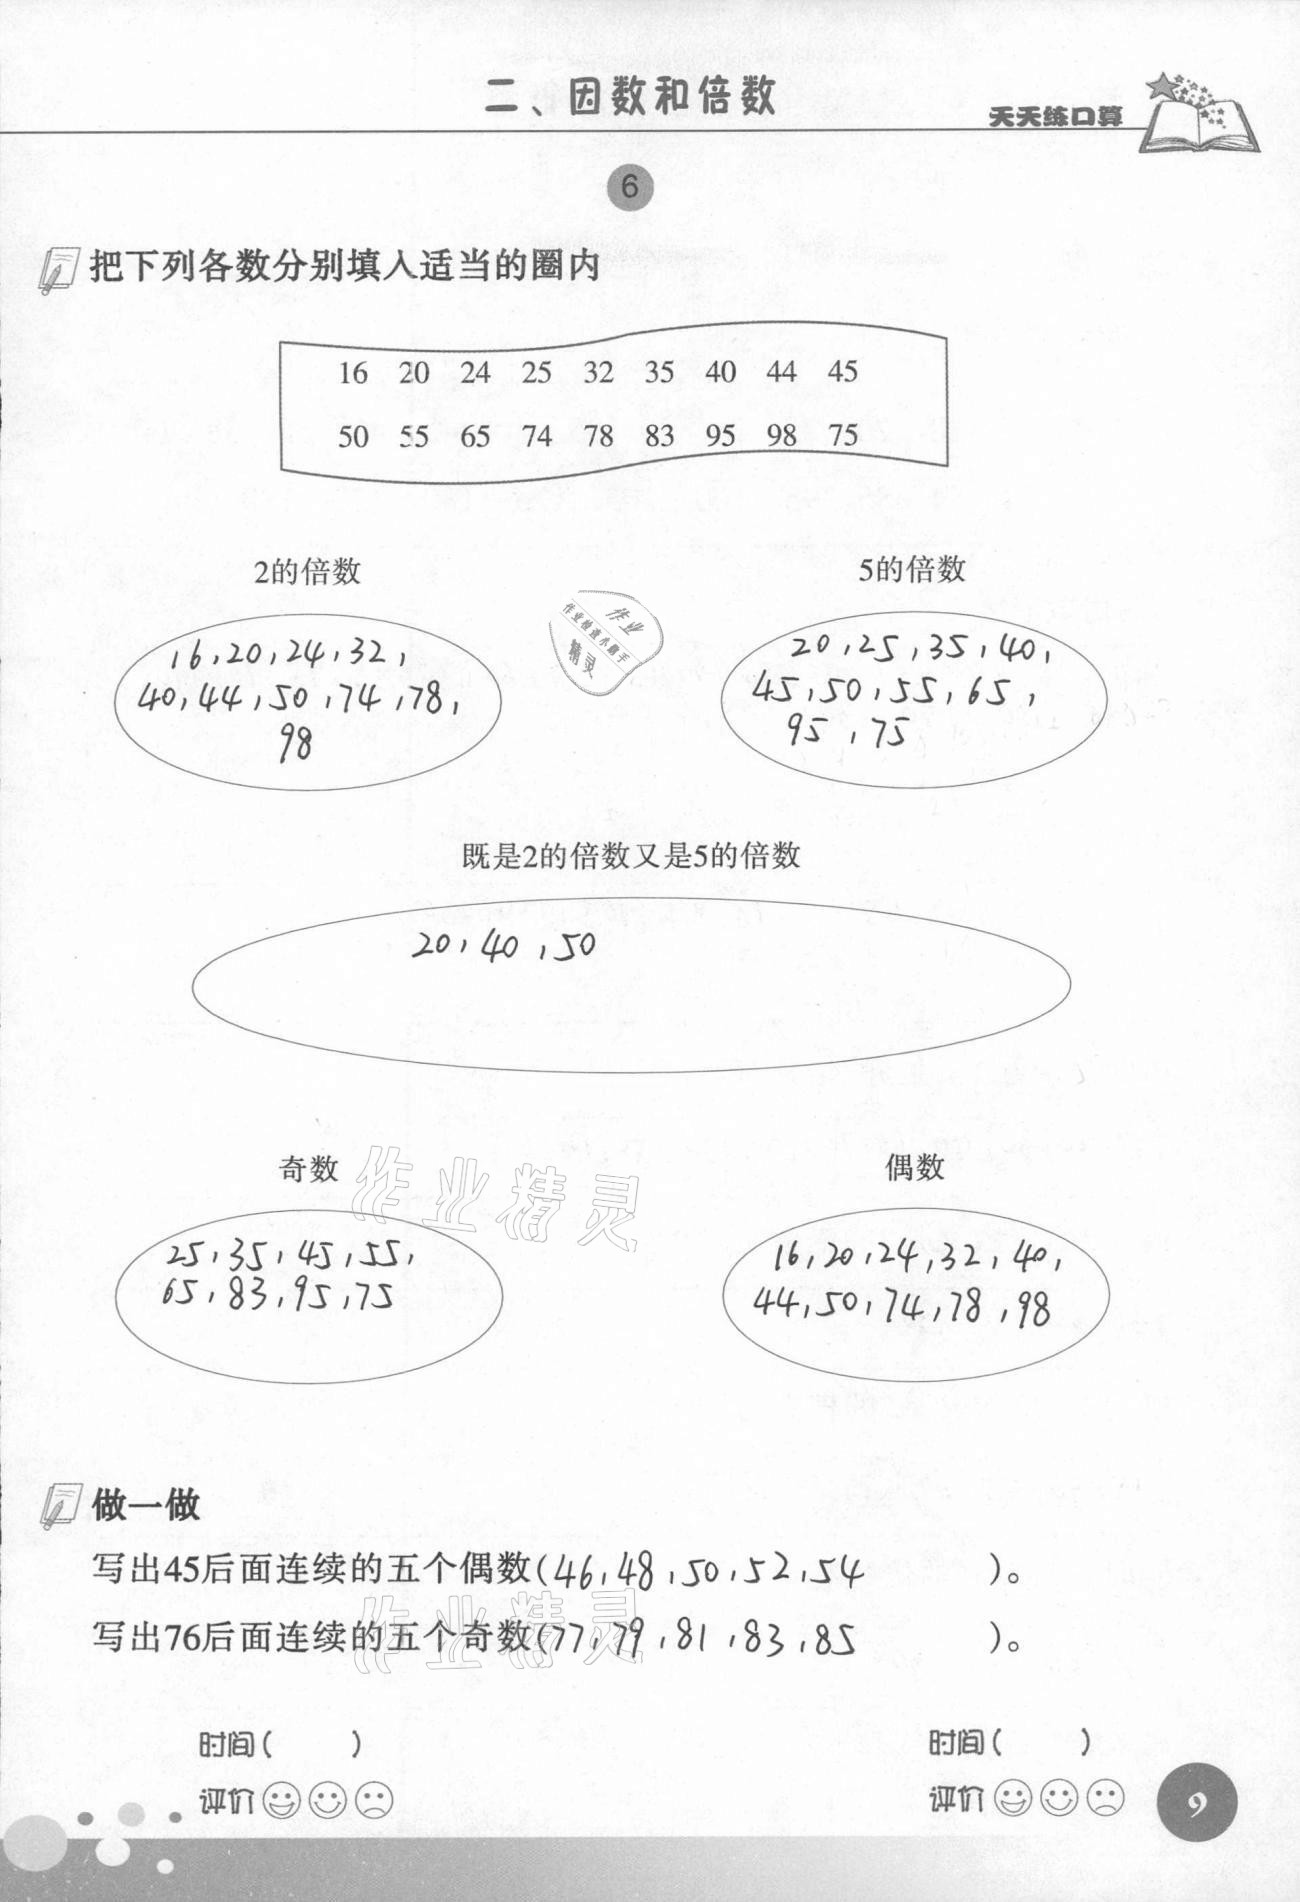 二、因数和倍数
天天练口算
6
把下列各数分别填入适当的圈内
16 20 24 25 32 35 40 44 45
50 55 65 74 78 83 95 98 75
2的倍数
5的倍数
16,20,24,32,
40,44,50,74,78,
98
20,25,35,40,
45,50,55,65,
95,75
作业
作业检查小助手
精灵
既是2的倍数又是5的倍数
20,40,50
奇数
偶数
作业精灵
25,35,45,55,
65,83,95,75
16,20,24,32,40,
44,50,74,78,98
做一做
写出45后面连续的五个偶数(46,48,50,52,54 )。
写出76后面连续的五个奇数(77,79,81,83,85 )。
作业精灵
时间( )
时间( )
评价
评价
9